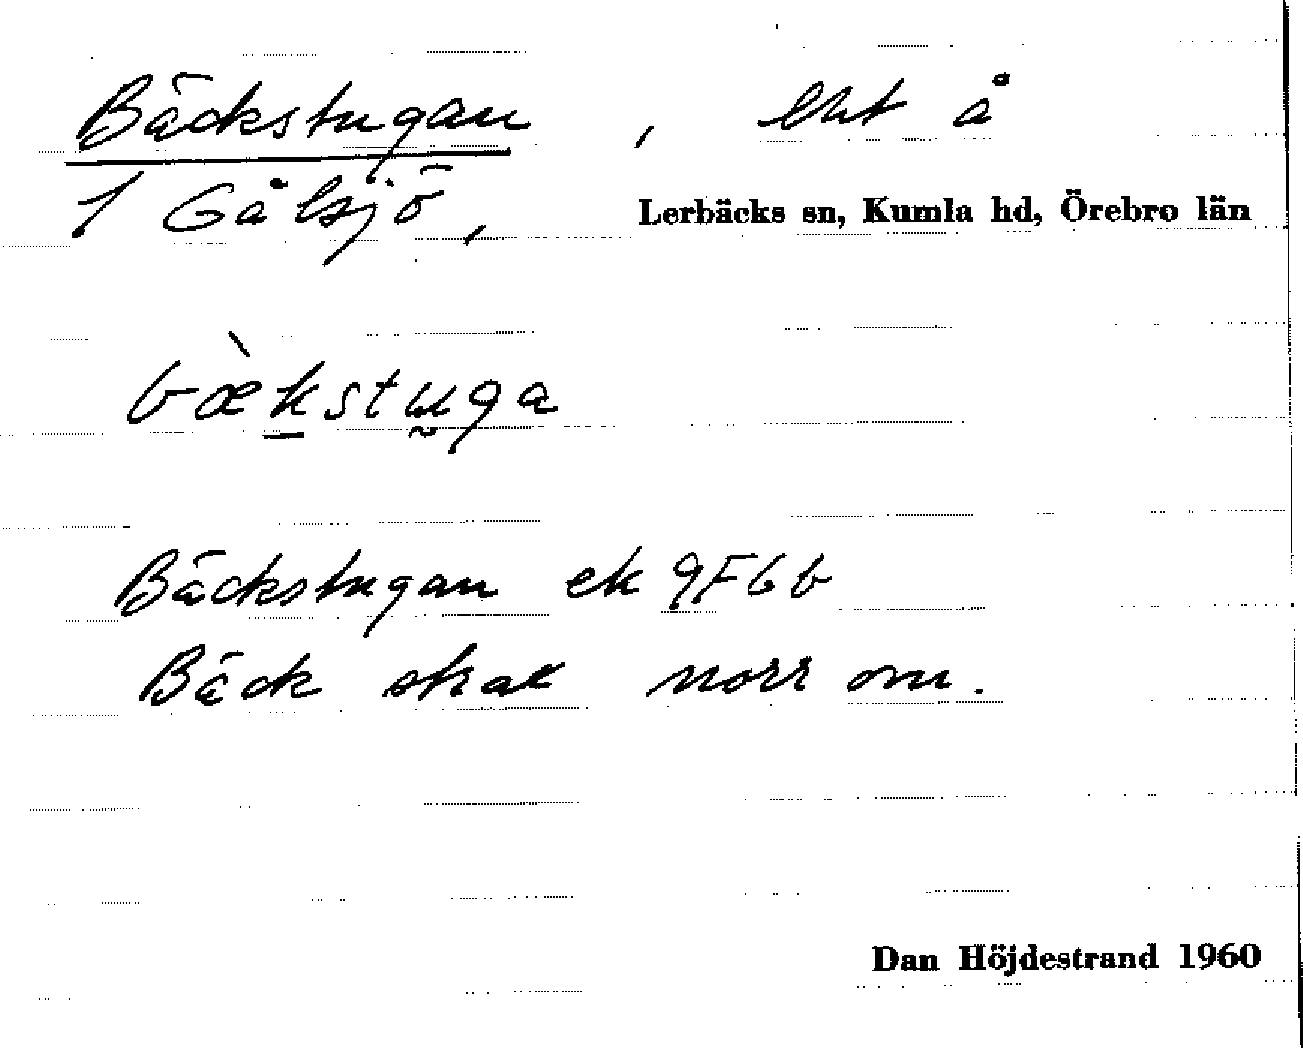 Bäckstugan, lht å
1 Gålsjö, Lerbäcks sn, Kumla hd, Örebro län
bæ̀kstuga
Bäckstugan ek 9F6b
Bäck strax norr om.
Dan Höjdestrand 1960